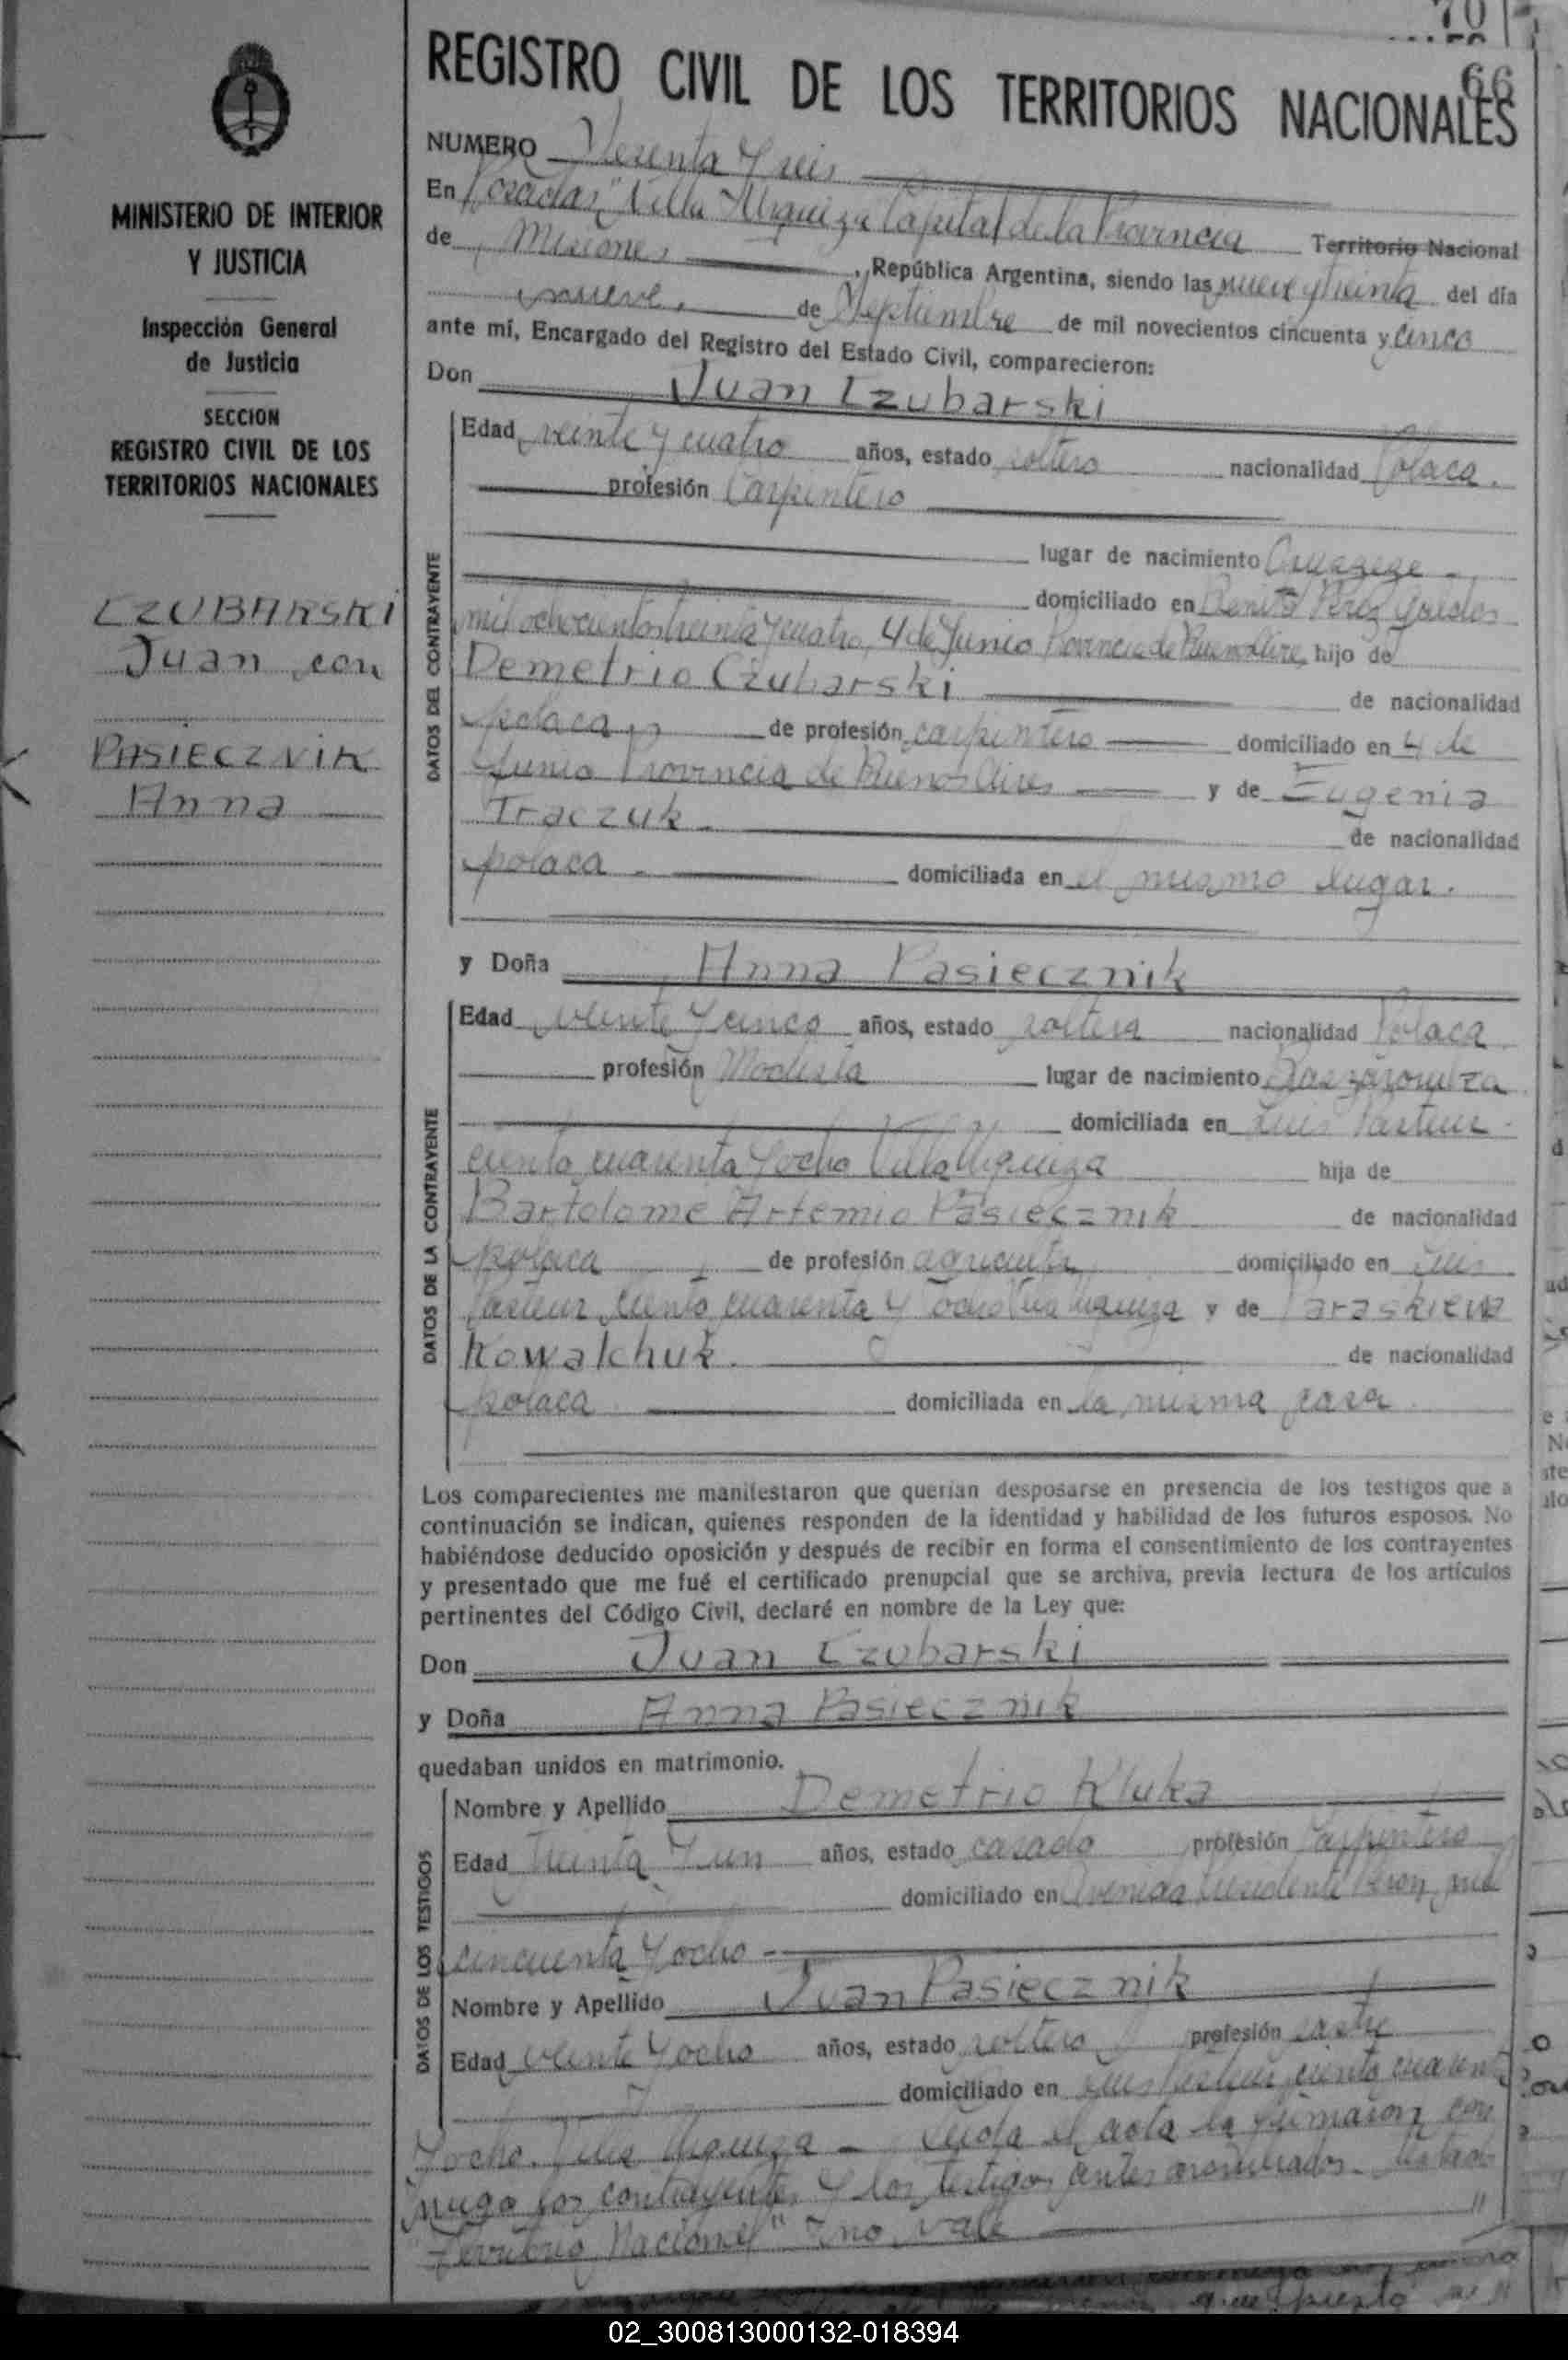 66
REGISTRO CIVIL DE LOS TERRITORIOS NACIONALES
MINISTERIO DE INTERIOR
Y JUSTICIA
Inspección General
de Justicia
SECCION
REGISTRO CIVIL DE LOS
TERRITORIOS NACIONALES
CZUBARSKI
Juan con
PASIECZNIK
Anna
NUMERO Sesenta y seis
En Posadas, Villa Urquiza Capital de la Provincia Territorio Nacional
de Misiones, República Argentina, siendo las nueve y treinta del día
nueve, de Septiembre de mil novecientos cincuenta y cinco
ante mí, Encargado del Registro del Estado Civil, comparecieron:
Don Juan Czubarski
DATOS DEL CONTRAYENTE
Edad veinte y cuatro años, estado soltero nacionalidad Polaca.
profesión Carpintero
lugar de nacimiento
domiciliado en Benito Perez Galdos
mil ochocientos treinta y cuatro, 4 de Junio Provincia de Buenos Aires, hijo de
Demetrio Czubarski de nacionalidad
polaca, de profesión carpintero domiciliado en 4 de
Junio Provincia de Buenos Aires y de Eugenia
Traczuk. de nacionalidad
polaca. domiciliada en el mismo lugar.
y Doña Anna Pasiecznik
DATOS DE LA CONTRAYENTE
Edad veinte y cinco años, estado soltera nacionalidad Polaca
profesión Modista lugar de nacimiento
domiciliada en Luis Pasteur
ciento cuarenta y ocho Villa Urquiza hija de
Bartolome Artemio Pasiecznik de nacionalidad
polaca, de profesión agricultor domiciliado en Luis
Pasteur ciento cuarenta y ocho Villa Urquiza y de Paraskiewa
Kowalchuk. de nacionalidad
polaca domiciliada en la misma casa.
Los comparecientes me manifestaron que querían desposarse en presencia de los testigos que a
continuación se indican, quienes responden de la identidad y habilidad de los futuros esposos. No
habiéndose deducido oposición y después de recibir en forma el consentimiento de los contrayentes
y presentado que me fué el certificado prenupcial que se archiva, previa lectura de los artículos
pertinentes del Código Civil, declaré en nombre de la Ley que:
Don Juan Czubarski
y Doña Anna Pasiecznik
quedaban unidos en matrimonio.
DATOS DE LOS TESTIGOS
Nombre y Apellido Demetrio Kluka
Edad treinta y un años, estado casado profesión Carpintero
domiciliado en Avenida Presidente Peron mil
cincuenta y ocho
Nombre y Apellido Juan Pasiecznik
Edad veinte y ocho años, estado soltero profesión sastre
domiciliado en Luis Pasteur ciento cuarenta
y ocho. Villa Urquiza - Leida el acta la firmaron con
migo los contrayentes y los testigos antes nombrados. Testado
"Territorio Nacional" no vale
02_300813000132-018394